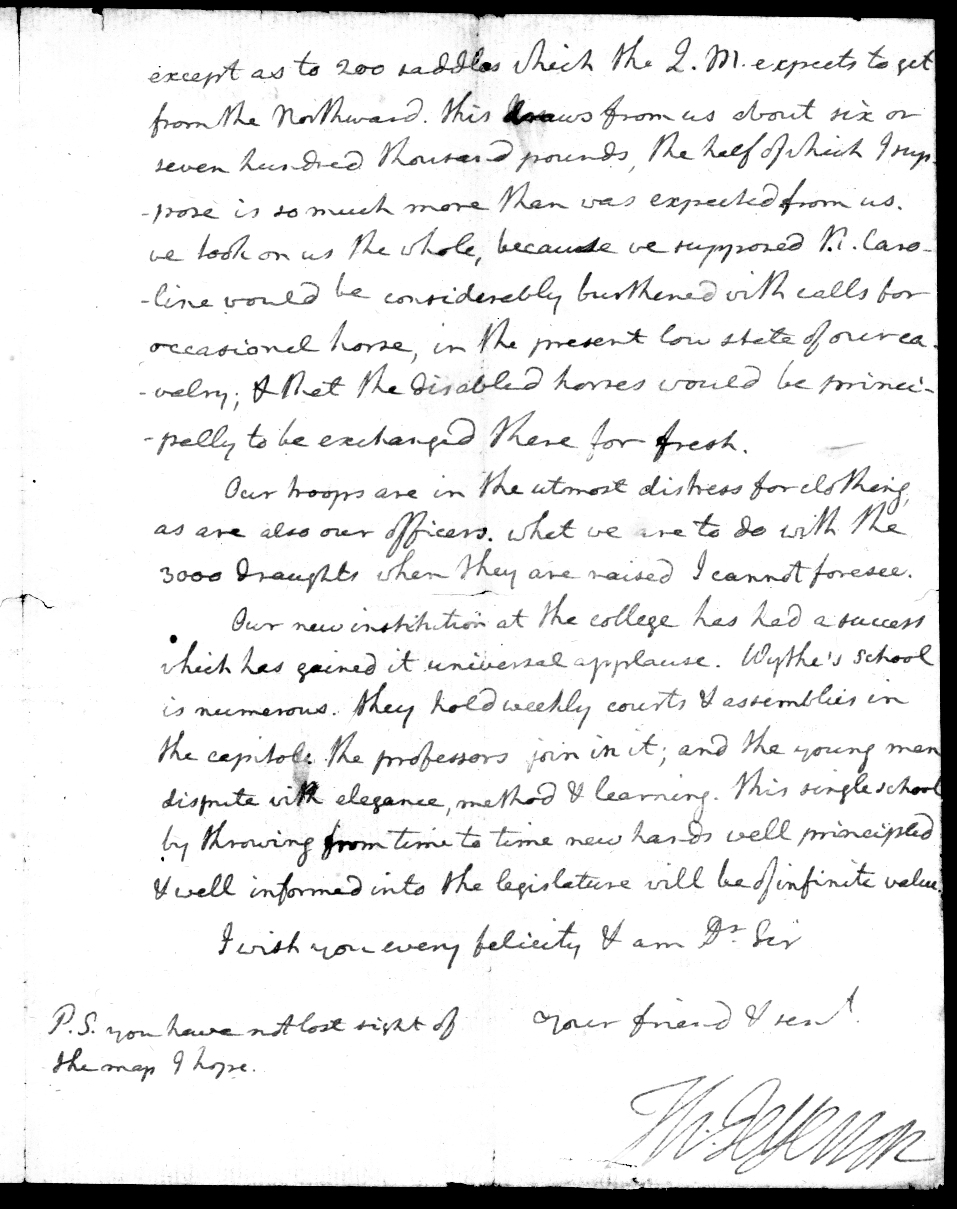 except as to 200 saddles which the Q. M. expects to get
from the Northward. this draws from us about six or
seven hundred thousand pounds, the half of which I sup-
-pose is so much more than was expected from us.
we took on us the whole, because we supposed N. Caro-
-lina would be considerably burthened with calls for
occasional horse, in the present low state of our ca-
-valry; & that the disabled horses would be princi-
-pally to be exchanged there for fresh.
Our troops are in the utmost distress for clothing,
as are also our officers. what we are to do with the
3000 draughts when they are raised I cannot foresee.
Our new institution at the college has had a success
which has gained it universal applause. Wythe's school
is numerous. they hold weekly courts & assemblies in
the capitol. the professors join in it; and the young men
dispute with elegance, method & learning. this single school
by throwing from time to time new hands well principled
& well informed into the legislature will be of infinite value.
I wish you every felicity & am Dr. Sir
your friend & servt.
P.S. you have not lost sight of
the map I hope.
Th: Jefferson